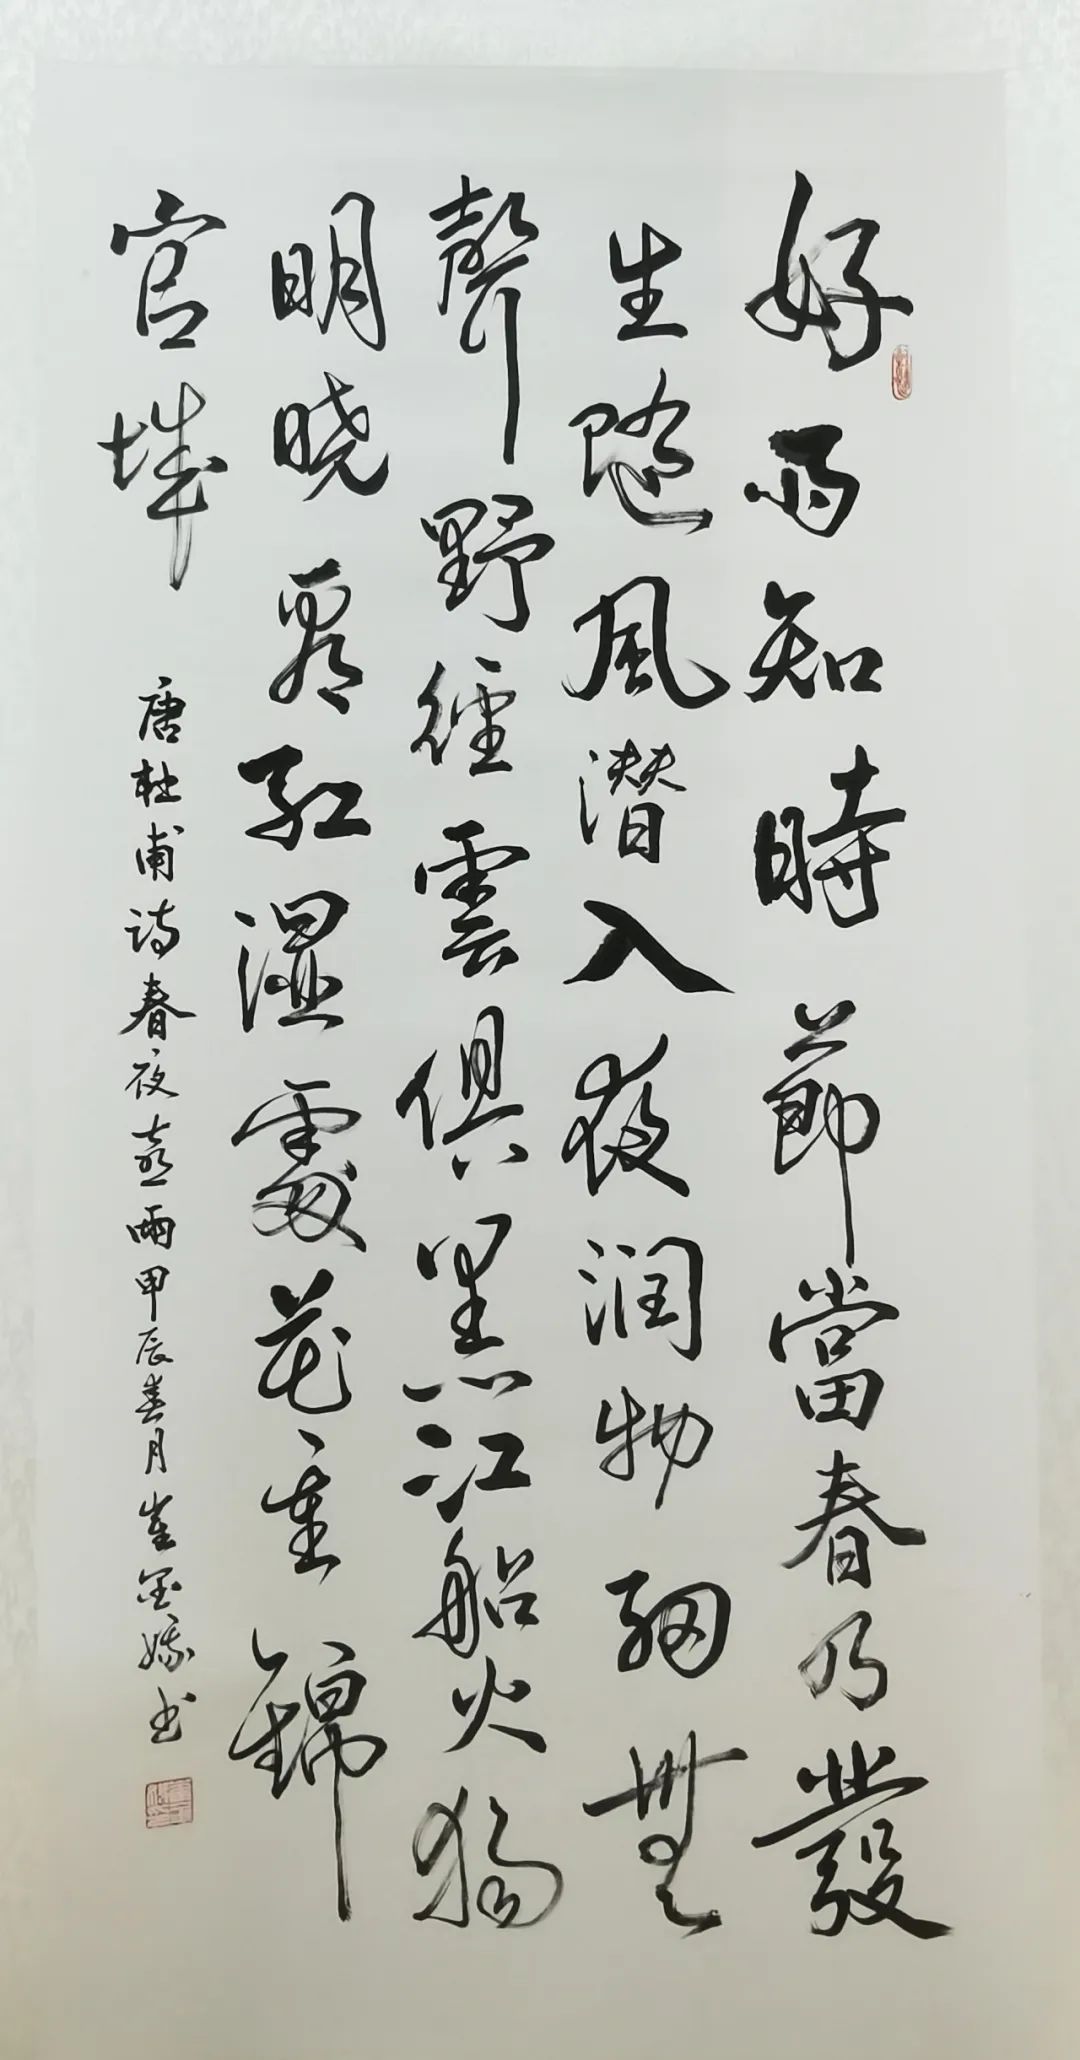 好雨知時節當春乃發
生隨風潜入夜润物细無
聲野徑雲俱黑江船火獨
明晓看红濕處花重錦
官城
唐杜甫诗春夜喜雨甲辰春月崔金娥书